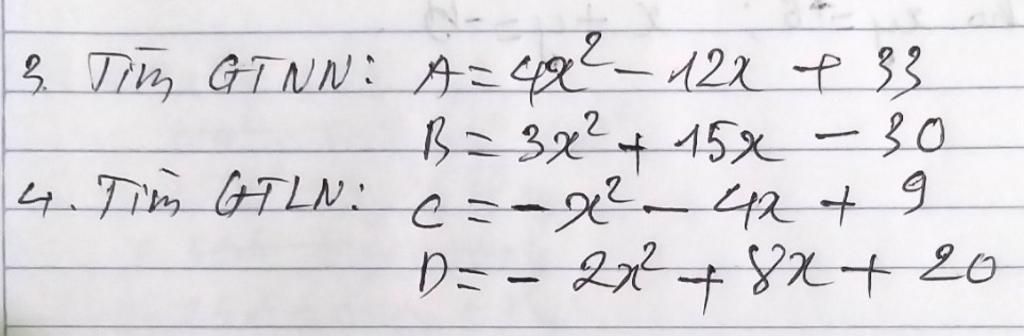 3. Tìm GTNN: A = 4x² - 12x + 33
B = 3x² + 15x - 30
4. Tìm GTLN: C = -x² - 4x + 9
D = - 2x² + 8x + 20